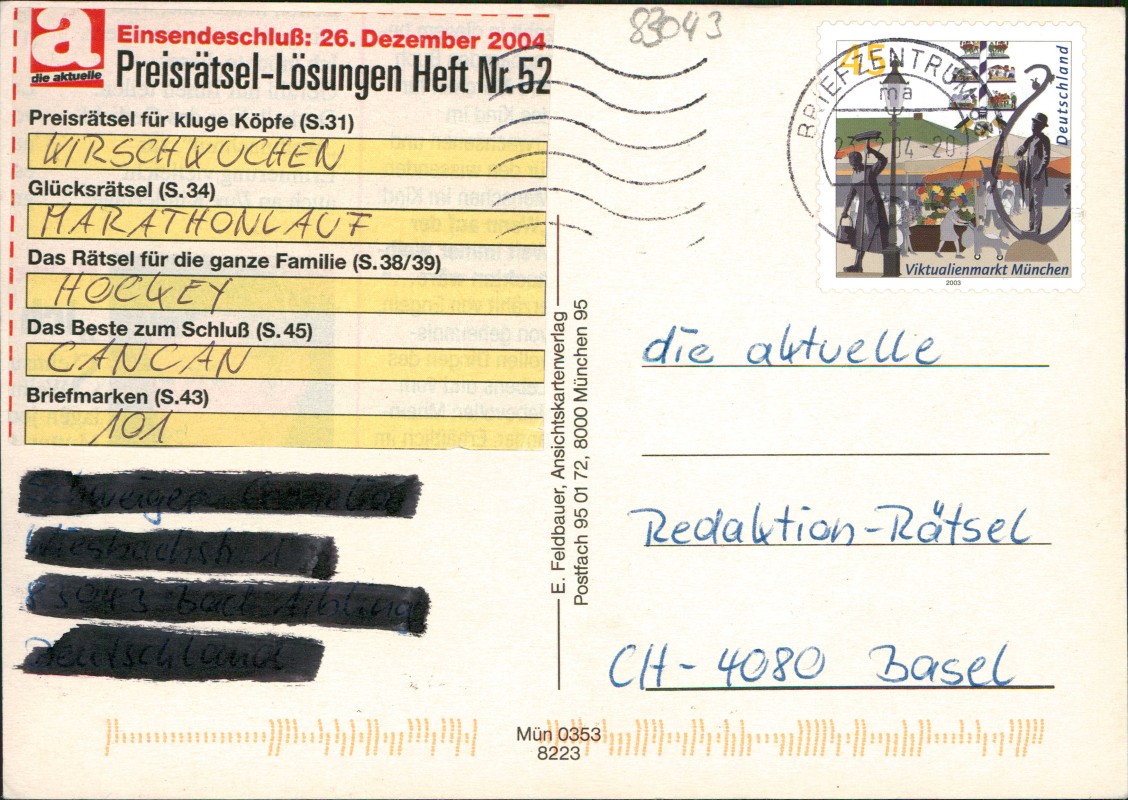 83043
a
die aktuelle
Einsendeschluß: 26. Dezember 2004
Preisrätsel-Lösungen Heft Nr. 52
Preisrätsel für kluge Köpfe (S.31)
KIRSCHKUCHEN
Glücksrätsel (S.34)
MARATHONLAUF
Das Rätsel für die ganze Familie (S.38/39)
HOCKEY
Das Beste zum Schluß (S.45)
CANCAN
Briefmarken (S.43)
101
E. Feldbauer, Ansichtskartenverlag
Postfach 95 01 72, 8000 München 95
45
Deutschland
Viktualienmarkt München
2003
BRIEFZENTRUM
ma
die aktuelle
Redaktion-Rätsel
CH-4080 Basel
Mün 0353
8223